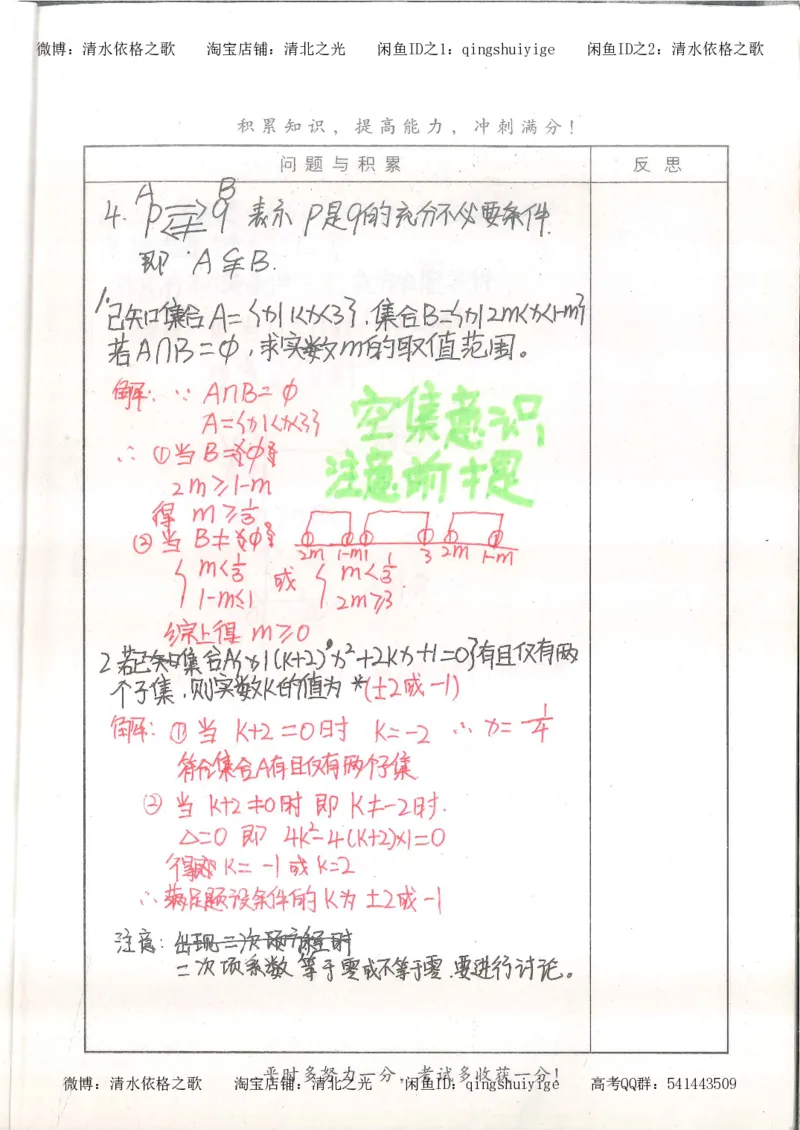 微博：清水依格之歌 淘宝店铺：清北之光 闲鱼ID之1：qingshuiyige 闲鱼ID之2：清水依格之歌
积累知识，提高能力，冲刺满分！
问题与积累 反思
A B
4. p⇄q 表示 p是q的充分不必要条件.
即 A⫋B.
1.已知集合A={x|1<x<3},集合B={x|2m<x<1-m}
若A∩B=∅,求实数m的取值范围。
解: ∵ A∩B=∅
A={x|1<x<3}
空集意识
∴ ①当B=∅
注意前提
2m≥1-m
得 m≥1/3
②当 B≠∅
2m 1-m 1 3 2m 1-m
{ m<1/3 或 { m<1/3
1-m≤1 2m≥3
综上得 m≥0
2若已知集合A{x|(k+2)x²+2kx+1=0}有且仅有两
个子集,则实数k的值为 *(±2或-1)
解: ①当 k+2=0时 k=-2 ∴ x=-1/4
符合集合A有且仅有两个子集
②当 k+2≠0时 即 k≠-2时.
△=0 即 4k²-4(k+2)×1=0
得 k=-1或k=2
∴满足题设条件的k为 ±2或-1
注意: 出现二次项方程时
二次项系数 等于零或不等于零.要进行讨论。
平时多努力一分，考试多收获一分！
微博：清水依格之歌 淘宝店铺：清北之光 闲鱼ID：qingshuiyige 高考QQ群：541443509